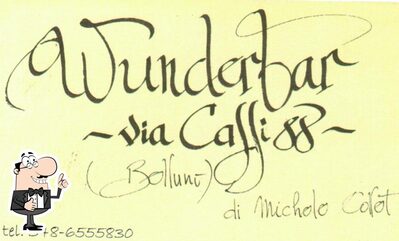 Wunderbar
~ via Caffi 88 ~
(Belluno)
di Michele Corot
tel. 348-6555830